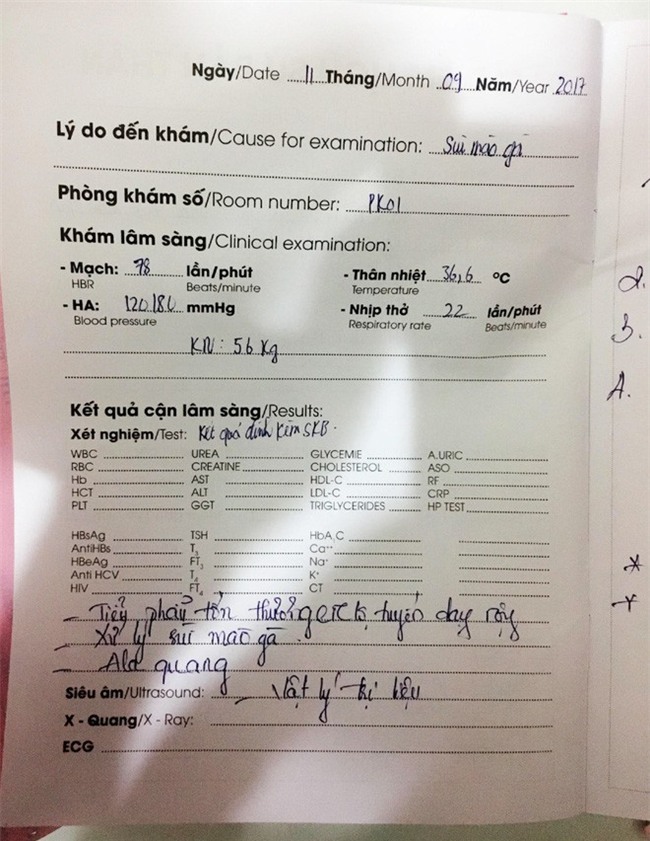 Ngày/Date 11 Tháng/Month 09 Năm/Year 2017
Lý do đến khám/Cause for examination: Sùi mào gà
Phòng khám số/Room number: PK01
Khám lâm sàng/Clinical examination:
- Mạch: 78 lần/phút - Thân nhiệt 36,6 °C
HBR Beats/minute Temperature
- HA: 120/80 mmHg - Nhịp thở 22 lần/phút
Blood pressure Respiratory rate Beats/minute
KN: 56 kg
Kết quả cận lâm sàng/Results:
Xét nghiệm/Test: Kết quả đính kèm SKB.
WBC UREA GLYCEMIE A.URIC
RBC CREATINE CHOLESTEROL ASO
Hb AST HDL-C RF
HCT ALT LDL-C CRP
PLT GGT TRIGLYCERIDES HP TEST
HBsAg TSH HbA₁C
AntiHBs T₃ Ca⁺⁺
HBeAg FT₃ Na⁺
Anti HCV T₄ K⁺
HIV FT₄ CT
- Tiểu phẫu tổn thương rộng
- Xử lý sùi mào gà
- Ala quang
Siêu âm/Ultrasound: - Vật lý trị liệu
X - Quang/X - Ray:
ECG
2.
3.
4.
*
*